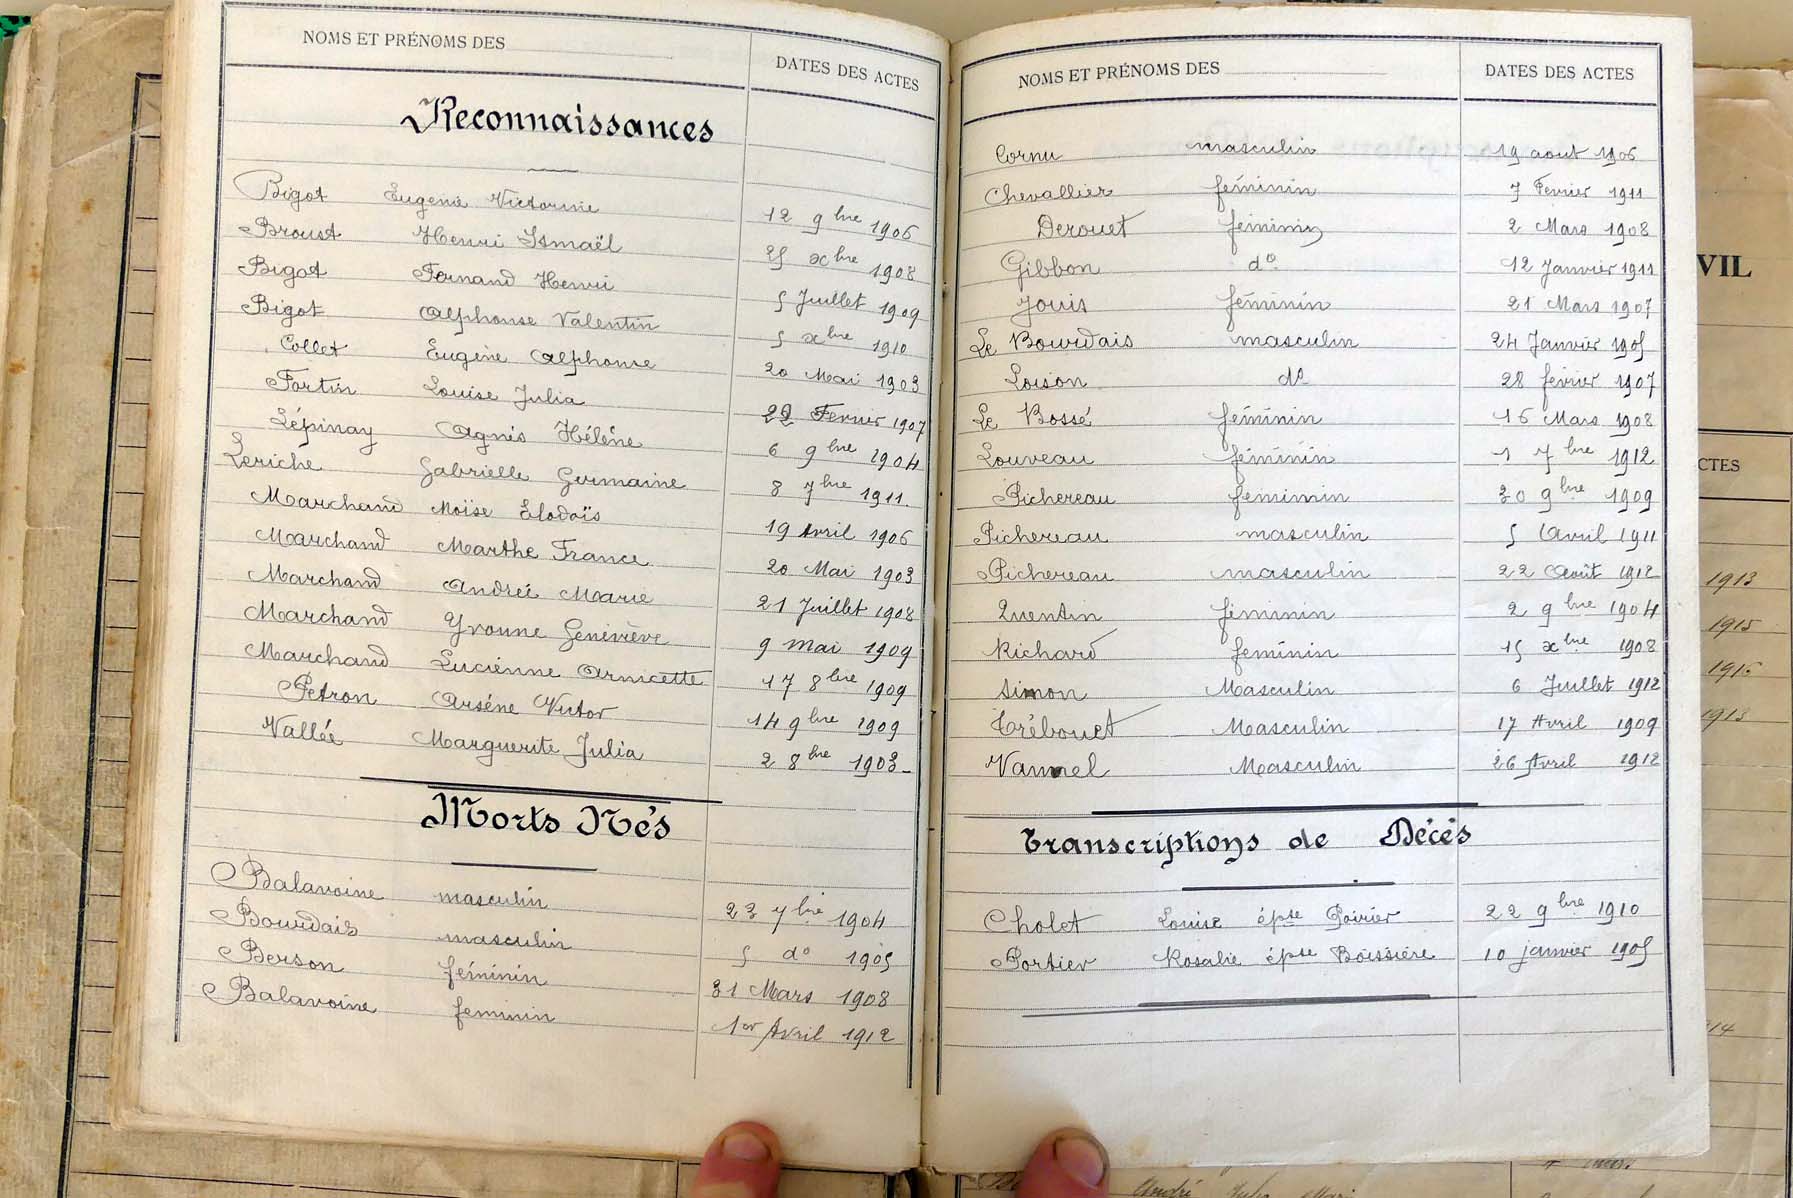 NOMS ET PRÉNOMS DES DATES DES ACTES
Reconnaissances
Bigot Eugénie Victorine 12 9bre 1906
Broust Henri Ismaël 25 xbre 1908
Bigot Fernand Henri 5 Juillet 1909
Bigot Alphonse Valentin 5 xbre 1910
Collet Eugène Alphonse 20 Mai 1903
Fortin Louise Julia 22 Fevrier 1907
Lépinay Agnès Hélène 6 9bre 1904
Leriche Gabrielle Germaine 8 7bre 1911
Marchand Moïse Elodoïs 19 Avril 1906
Marchand Marthe France 20 Mai 1903
Marchand Andrée Marie 21 Juillet 1908
Marchand Yvonne Geneviève 9 mai 1909
Marchand Lucienne Arnicette 17 8bre 1909
Petron Arsène Victor 14 9bre 1909
Vallée Marguerite Julia 2 8bre 1903
Morts Nés
Balavoine masculin 23 7bre 1904
Bourdais masculin 5 do 1905
Berson féminin 31 Mars 1908
Balavoine feminin 1er Avril 1912
NOMS ET PRÉNOMS DES DATES DES ACTES
Cornu masculin 19 aout 1906
Chevallier féminin 7 Fevrier 1911
Derouet féminin 2 Mars 1908
Gibbon do 12 Janvier 1911
Jouis féminin 21 Mars 1907
Le Bourdais masculin 24 Janvier 1905
Loison do 28 février 1907
Le Bossé féminin 16 Mars 1908
Louveau féminin 1 7bre 1912
Pichereau feminin 30 9bre 1909
Pichereau masculin 5 Avril 1911
Pichereau masculin 22 Août 1912
Quentin féminin 2 9bre 1904
Richard feminin 15 xbre 1908
Simon Masculin 6 Juillet 1912
Trébouet Masculin 17 Avril 1909
Vannel Masculin 26 Avril 1912
Transcriptions de Décès
Cholet Louise épse Poirier 22 9bre 1910
Portier Rosalie épse Boissière 10 janvier 1905
VIL
CTES
1913
1915
1916
1913
14
André